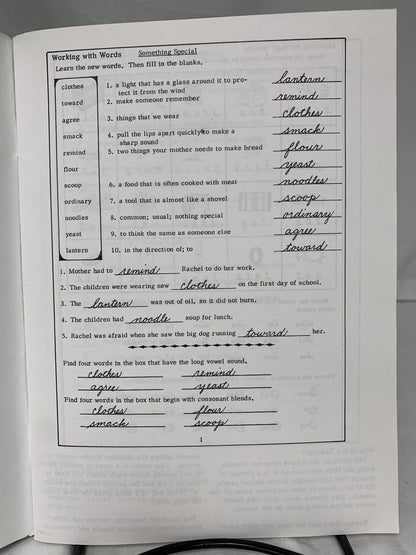 Working with Words Something Special
Learn the new words. Then fill in the blanks.
clothes
toward
agree
smack
remind
flour
scoop
ordinary
noodles
yeast
lantern
1. a light that has a glass around it to pro-
tect it from the wind lantern
2. make someone remember remind
3. things that we wear clothes
4. pull the lips apart quickly to make a
sharp sound smack
5. two things your mother needs to make bread flour
yeast
6. a food that is often cooked with meat noodles
7. a tool that is almost like a shovel scoop
8. common; usual; nothing special ordinary
9. to think the same as someone else agree
10. in the direction of; to toward
1. Mother had to remind Rachel to do her work.
2. The children were wearing new clothes on the first day of school.
3. The lantern was out of oil, so it did not burn.
4. The children had noodle soup for lunch.
5. Rachel was afraid when she saw the big dog running toward her.
Find four words in the box that have the long vowel sound.
clothes remind
agree yeast
Find four words in the box that begin with consonant blends.
clothes flour
smack scoop
1